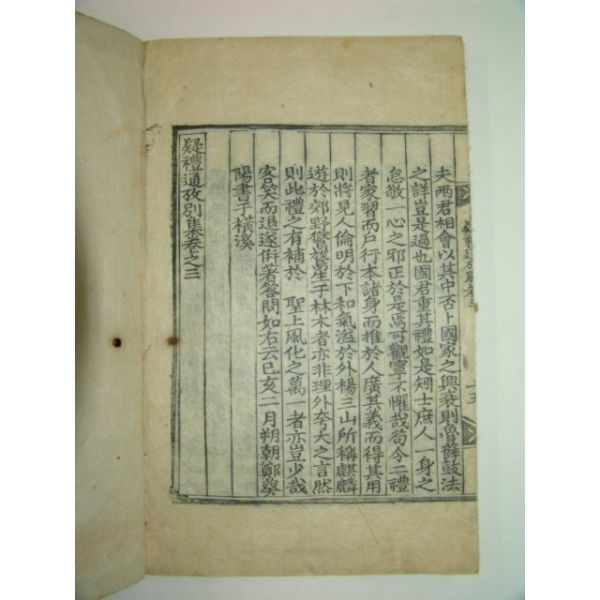 夫兩君相會以其中否卜國家之興衰則魯薛鼓法
之詳豈是過也國君重其禮如是矧士庶人一身之
怠敬一心之邪正於是焉可觀寧不懼哉苟令二禮
者家習而戶行本諸身而推於人廣其義而得其用
則將見人倫明於下和氣溢於外楊三山所稱麒麟
遊於郊野鸑鷟星于林木者亦非理外夸大之言然
則此禮之有補於 聖上風化之萬一者亦豈少哉
客笑而退遂倂著答問如右云己亥二月朔朝鄭葵
陽書于橫溪
疑禮通攷別集卷之三